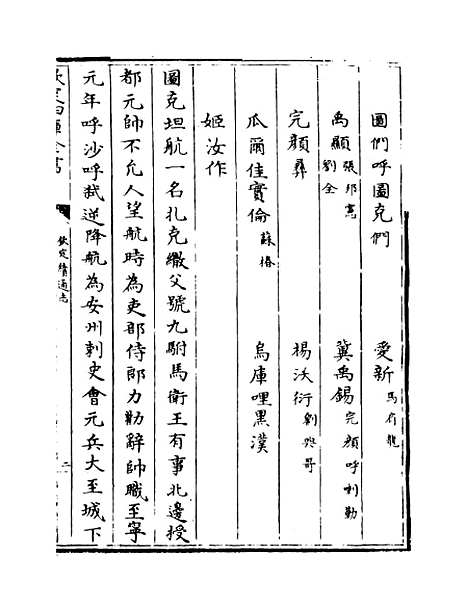 圖們呼圖克們　愛新馬肩龍
禹顯張邦憲劉全　冀禹錫完顏呼利勒
完顏彞　楊沃衍劉興哥
瓜爾佳實倫蘇椿　烏庫哩黑漢
姬汝作
圖克坦航一名扎克繳父號九駙馬衛王有事北邊授
都元帥不允人望航時為吏部侍郎力勸辭帥職至寧
元年呼沙呼弒逆降航為安州刺史會元兵大至城下
欽定四庫全書
欽定續通志
二